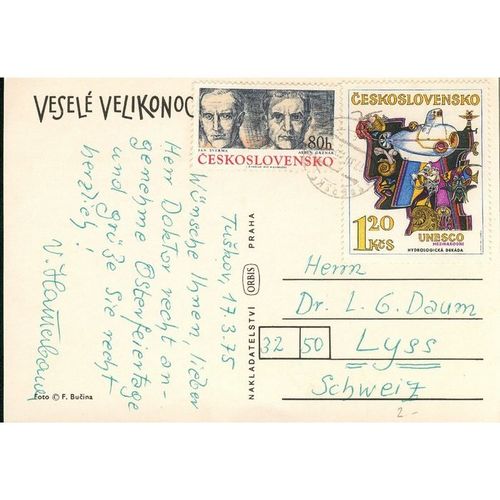 VESELÉ VELIKONOC
JAN ŠVERMA
80h
ČESKOSLOVENSKO
ČESKOSLOVENSKO
1,20
Kčs
UNESCO
MEZINÁRODNÍ
HYDROLOGICKÁ DEKÁDA
17.3.75
Wünsche Ihnen, lieber
Herr Doktor recht an-
genehme Osterfeiertage
und grüße Sie recht
herzlich!
Foto © F. Bučina
NAKLADATELSTVÍ ORBIS PRAHA
Herrn
Dr. L. G. Daum
32 50 Lyss
Schweiz
2.-